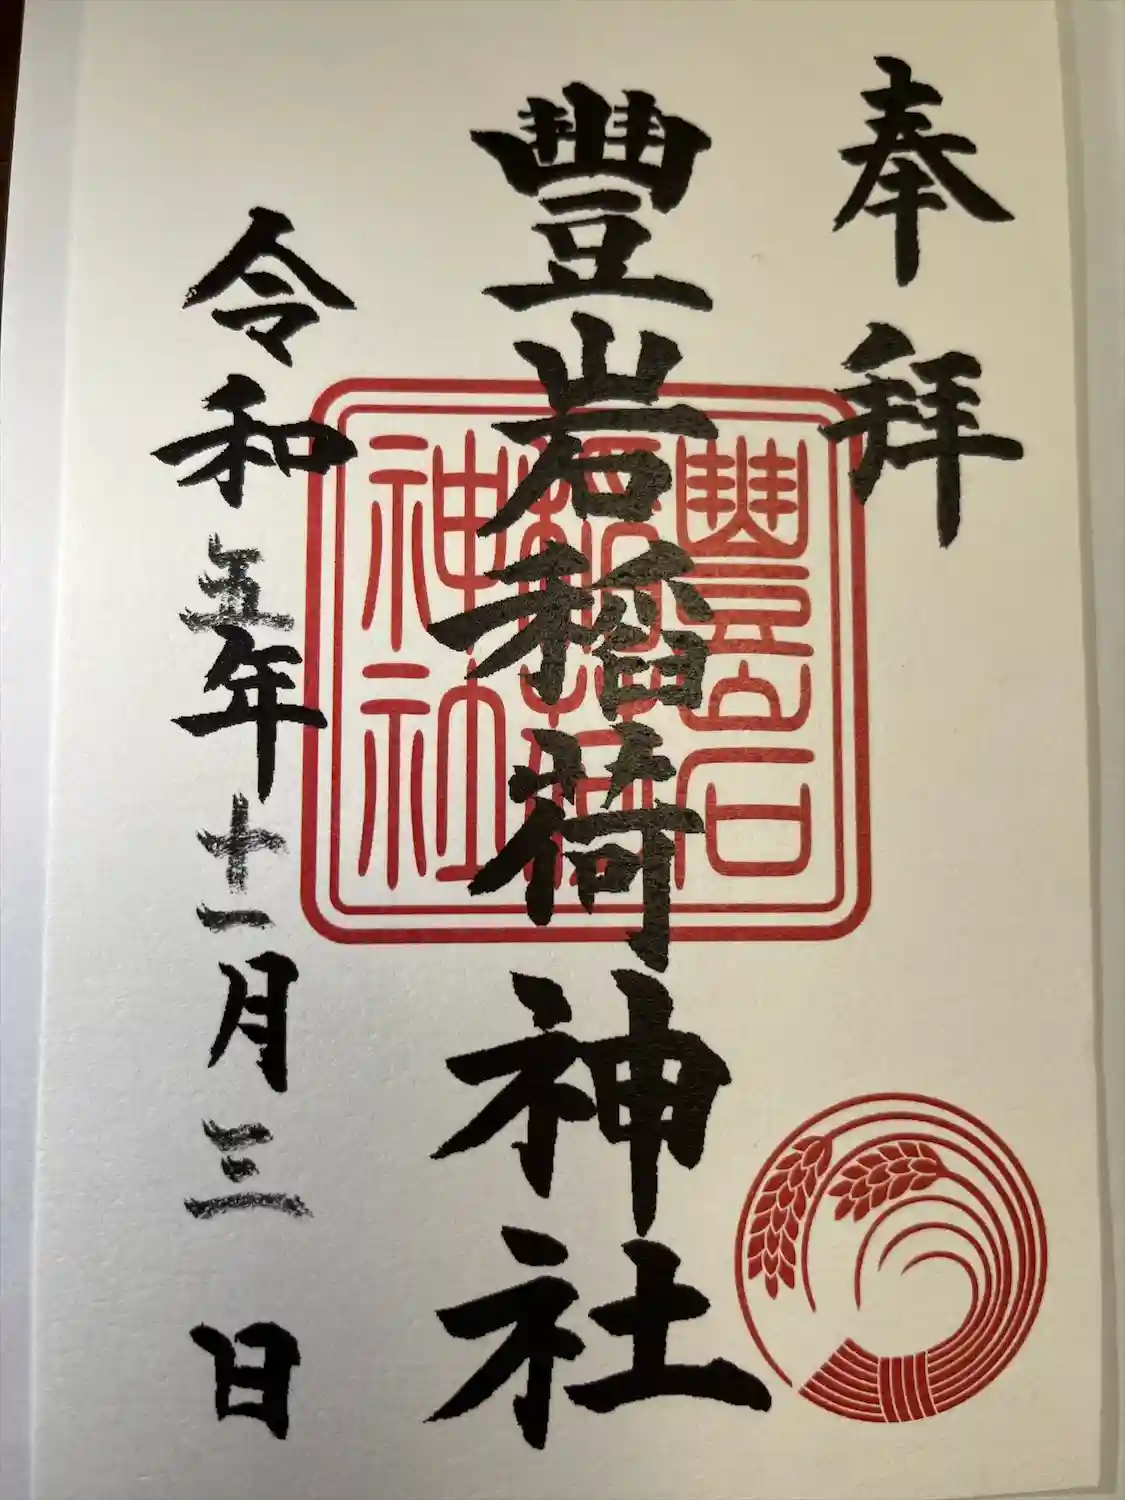 奉拜
豐岩稲荷神社
豐岩稲荷神社
令和五年十一月三日